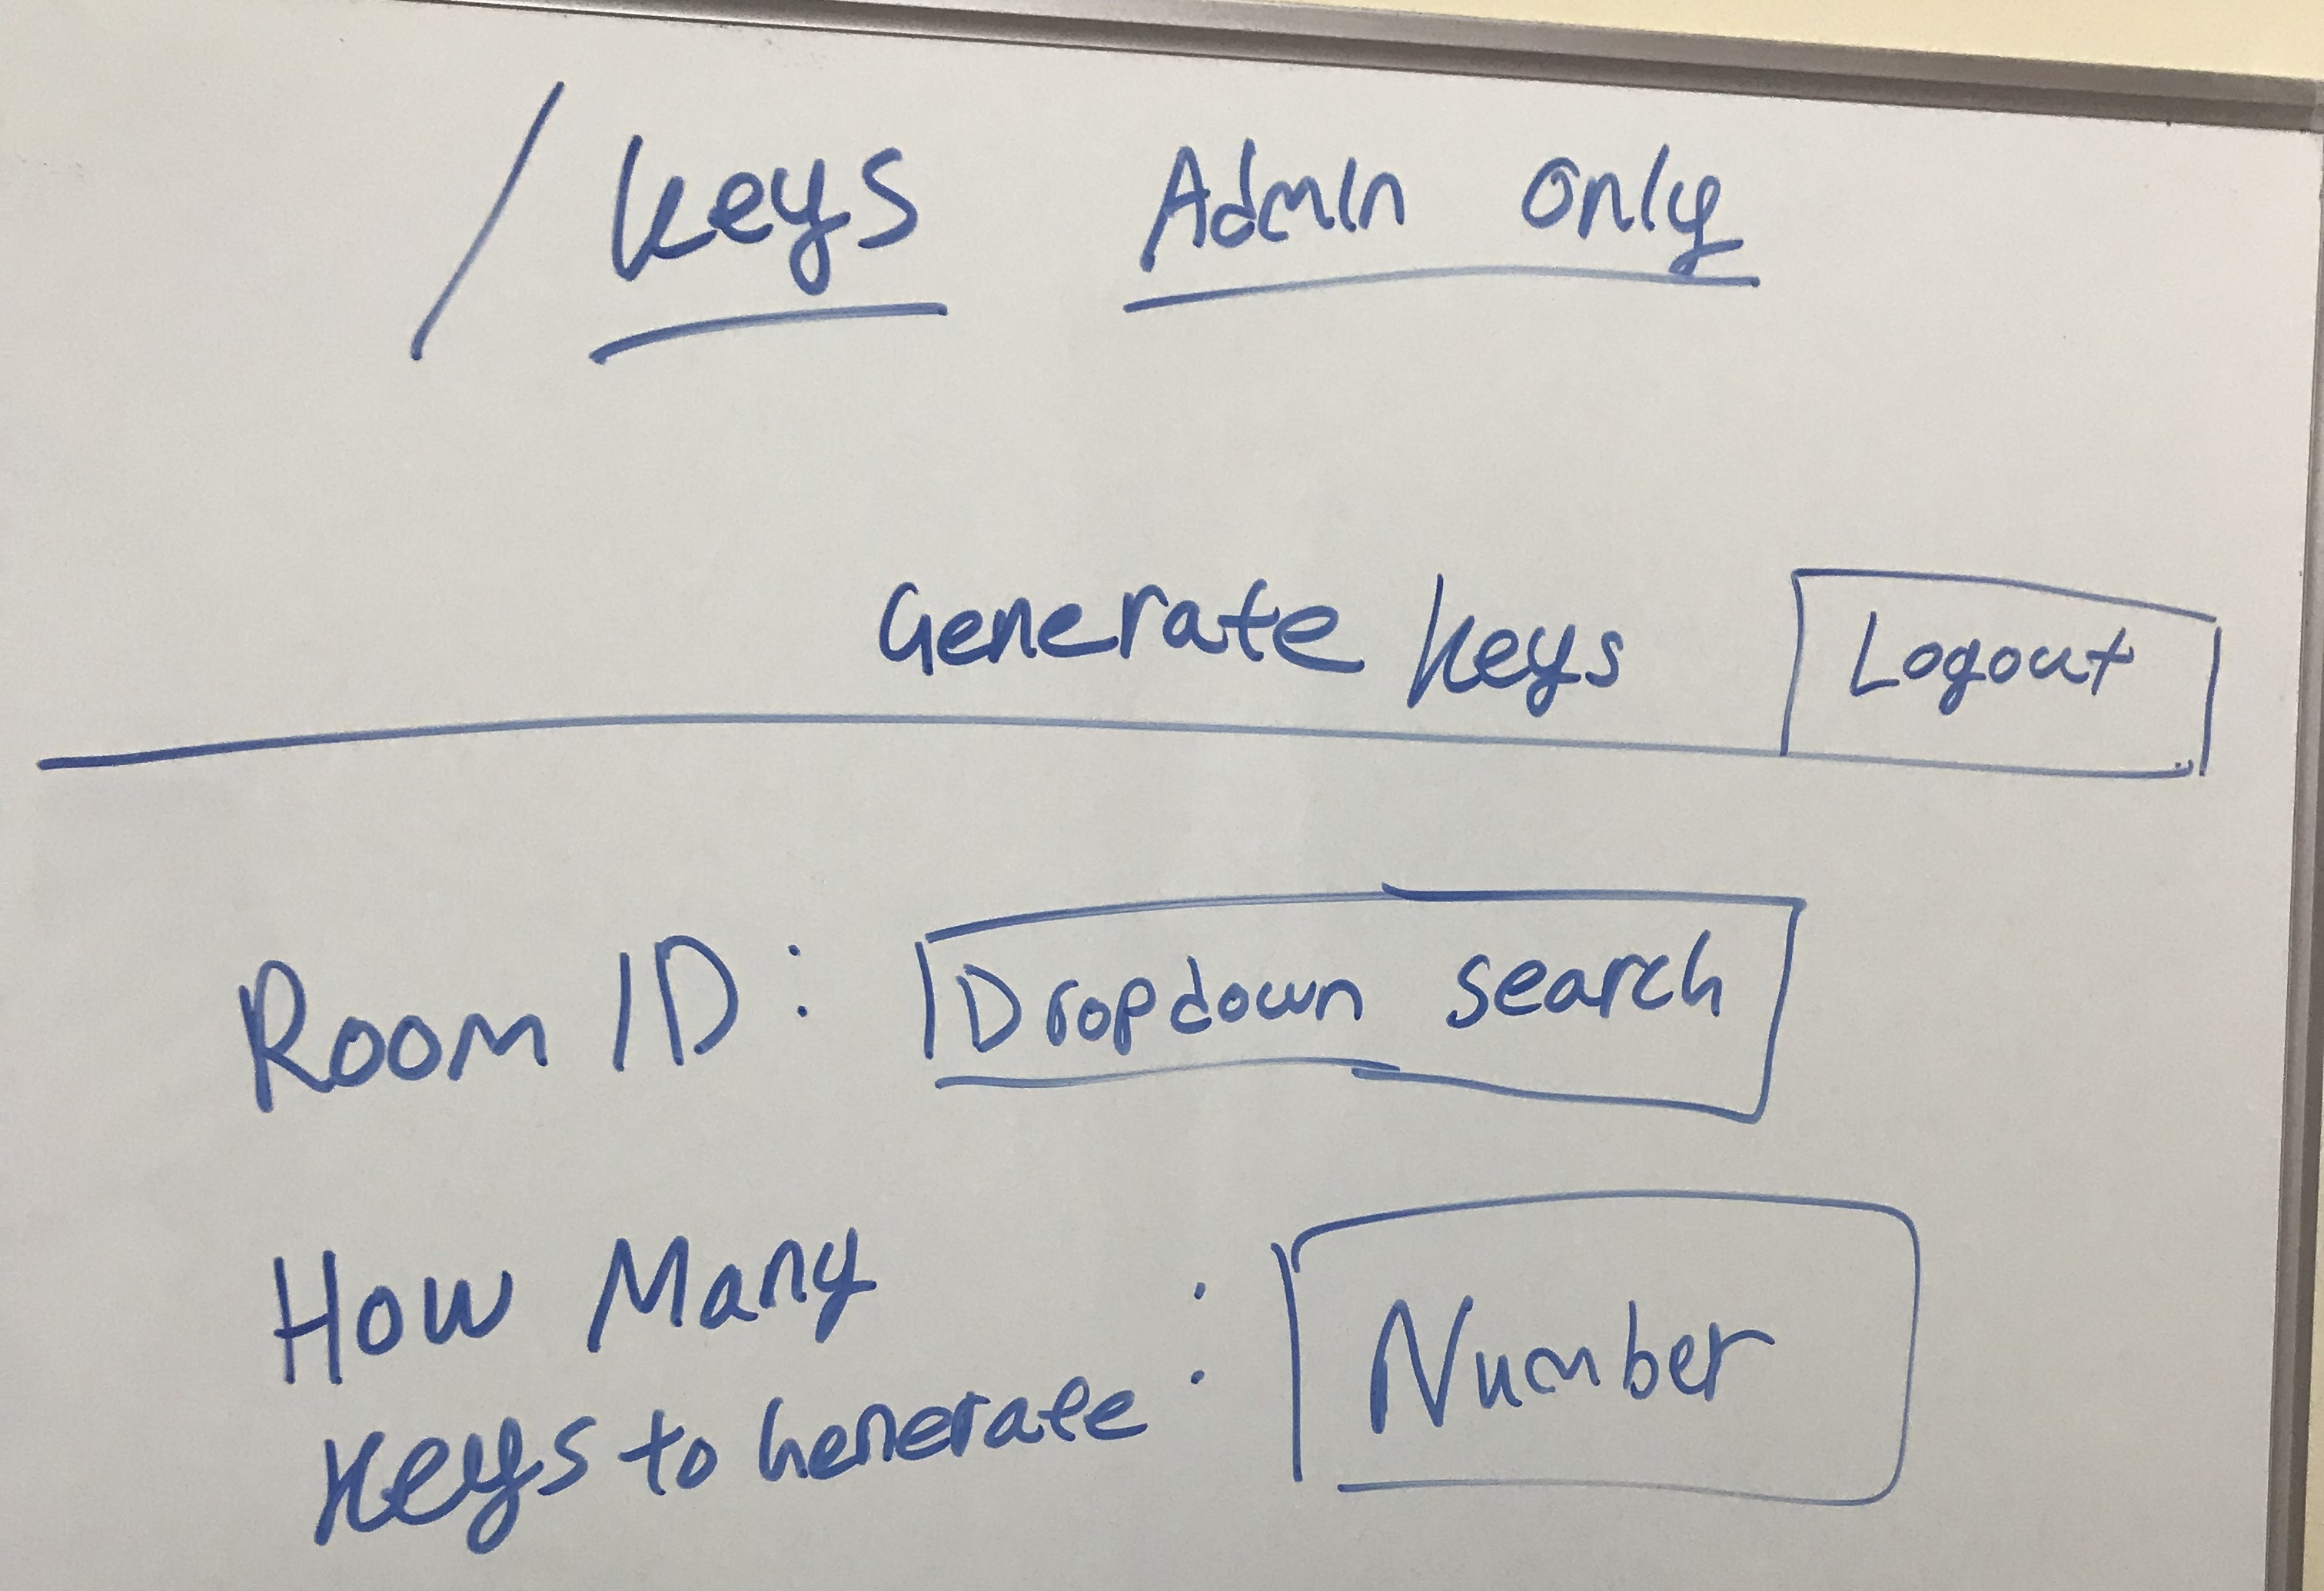 / keys Admin only
Generate keys Logout
Room ID: Dropdown search
How Many
keys to Generate: Number